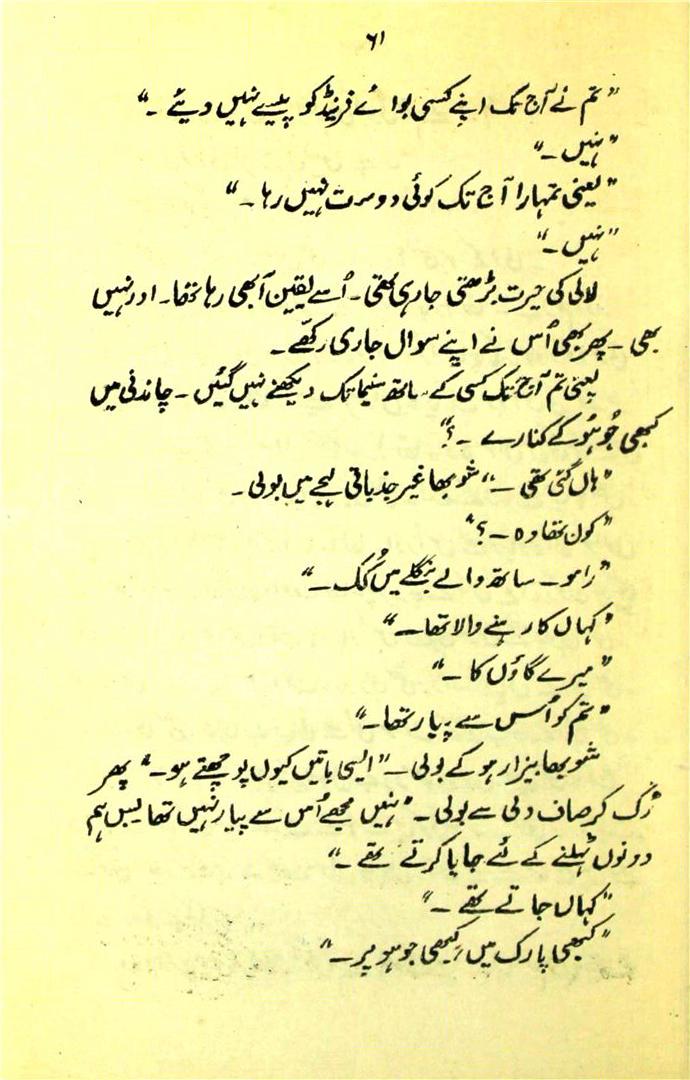 ۶۱
"تم نے آج تک اپنے کسی بوائے فرینڈ کو پیسے نہیں دیئے ۔"
"نہیں ۔"
"یعنی تمہارا آج تک کوئی دوست نہیں رہا ۔"
"نہیں ۔"
لالی کی حیرت بڑھتی جا رہی تھی ۔ اُسے یقین آبھی رہا تھا ۔ اور نہیں
بھی ۔ پھر بھی اُس نے اپنے سوال جاری رکھّے ۔
یعنی تم آج تک کسی کے ساتھ سنیما تک دیکھنے نہیں گئیں ۔ چاندنی میں
کبھی جُوہُو کے کنارے ۔ ؟"
"ہاں گئی تھی ۔" شوبھا غیر جذباتی لہجے میں بولی ۔
"کون تھا وہ ۔ ؟"
"رامو ۔ ساتھ والے بنگلے میں کُک ۔"
"کہاں کا رہنے والا تھا ۔"
"میرے گاؤں کا ۔"
"تم کو اُس سے پیار تھا ۔"
شوبھا بیزار ہو کے بولی ۔ "ایسی باتیں کیوں پوچھتے ہو ۔" پھر
رُک کر صاف دلی سے بولی ۔ "نہیں مجھے اُس سے پیار نہیں تھا بس ہم
دونوں ٹہلنے کے لئے جایا کرتے تھے ۔"
"کہاں جاتے تھے ۔"
"کبھی پارک میں، کبھی جوہو پر ۔"